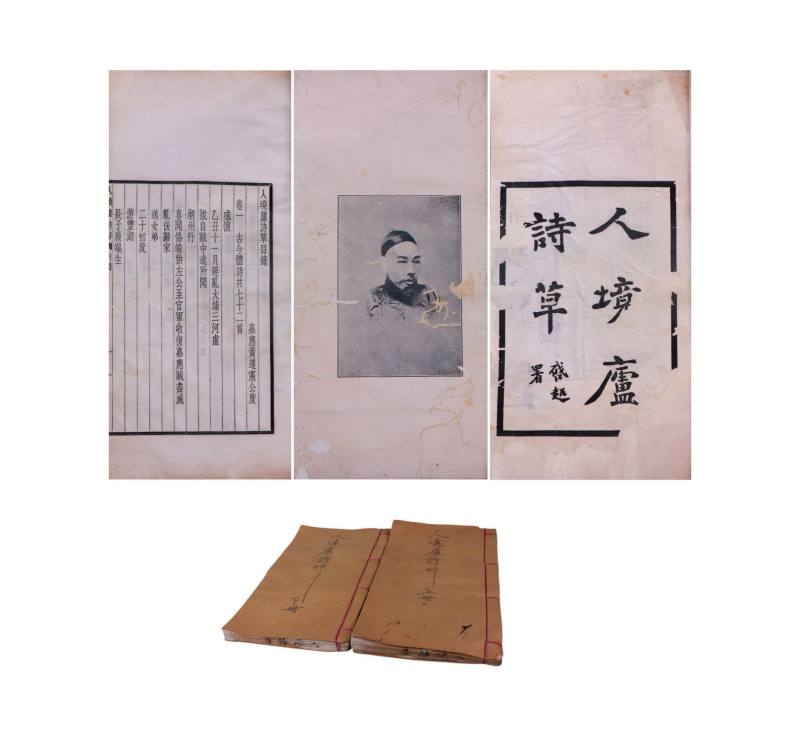 人境廬
詩草
啓超
署
人境廬詩草目錄
嘉應黃遵憲公度
卷一 古今體詩共七十二首
感懷
乙丑十一月避亂大埔三河虛
拔自賊中述所聞
潮州行
喜聞恪靖伯左公至官軍收復嘉應賊盡滅
亂後歸家
送女弟
二十初度
游豐湖
長子履端生
人境廬詩草 上冊
人境廬詩草 下冊